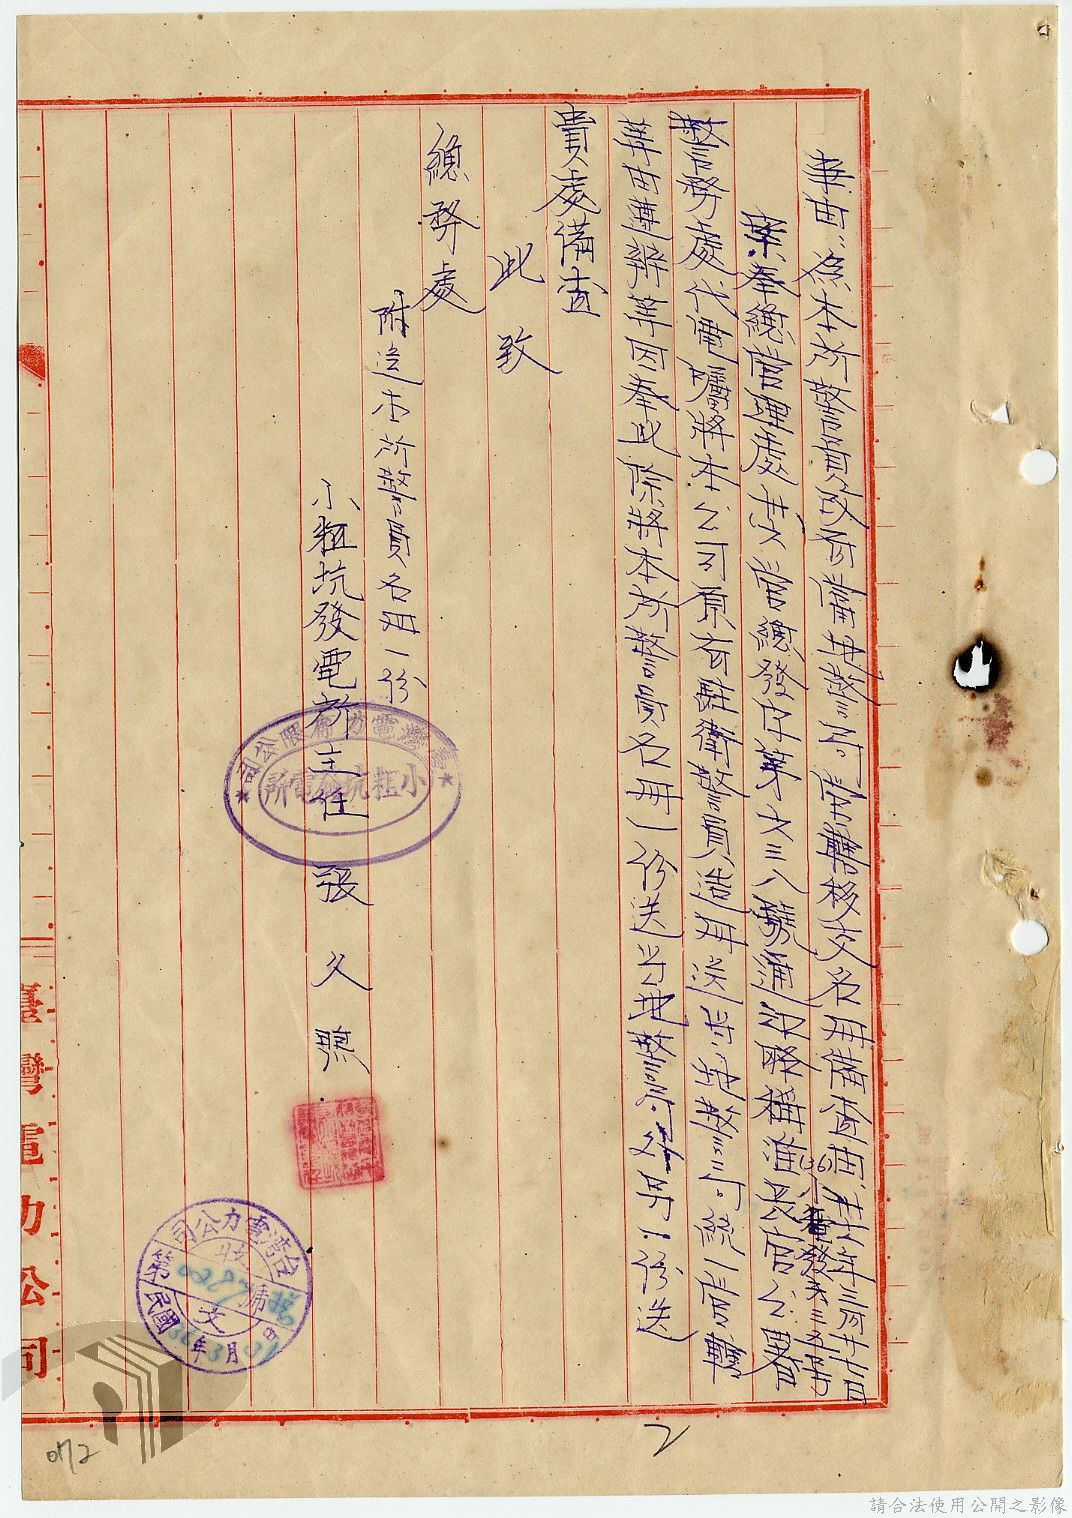 事由:為本所警員改而當地警局管轄移交名冊備查由
卅六年三月廿七日
(36)小電發字三五号
案奉總管理處卅六管總發字第六三八號通知略稱准長官公署
警務處代電囑將本公司原有駐衛警員造冊送当地警局統一管轄
等由遵辦等因奉此除將本所警員名冊一份送当地警局外另一份送
貴處備查
此致
總務處
附送本所警員名冊一份
小粗坑發電所主任 張久照
臺灣電力有限公司
小粗坑發電所
台灣電力公司
收文
第 號
民國36年3月 日
臺灣電力公司
2
072
請合法使用公開之影像